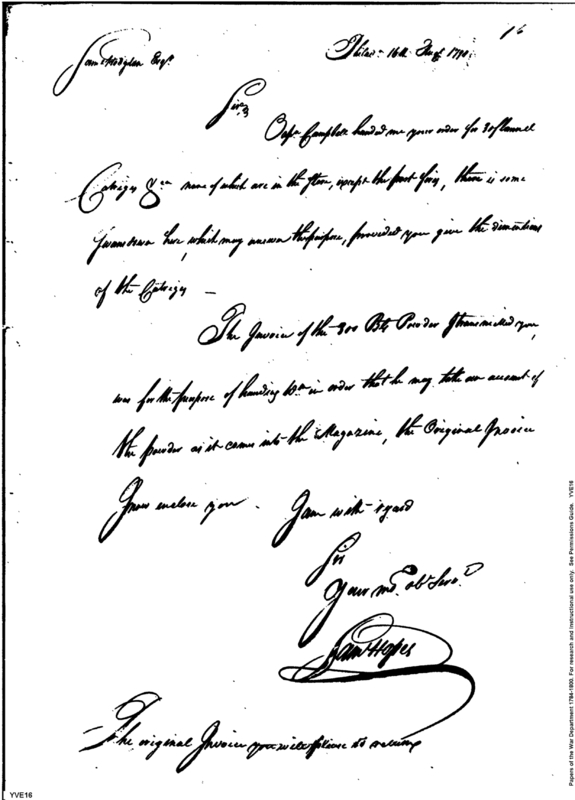 16
Philada. 16th Augt 1790.
Saml Hodgdon Esqr.
Sir,
Capn Campbell handed me your order for 30 flannel
Catriges &ca none of which are in the Store, except the port fires, there is some
Swansdown here, which may answer the purpose, provided you give the dimentions
of the Catriges —
The Invoice of the 300 Bls Powder I transmitted you,
was for the purpose of handing in order that he may take an account of
the powder as it comes into the Magazine, the Original Invoice
I now inclose you - I am with regard
Sir
Your mo. obt. Servt.
Saml Hodges
The original Invoice you will please to return
Papers of the War Department 1784-1800. For research and instructional use only. See Permissions Guide. YVE16
YVE16